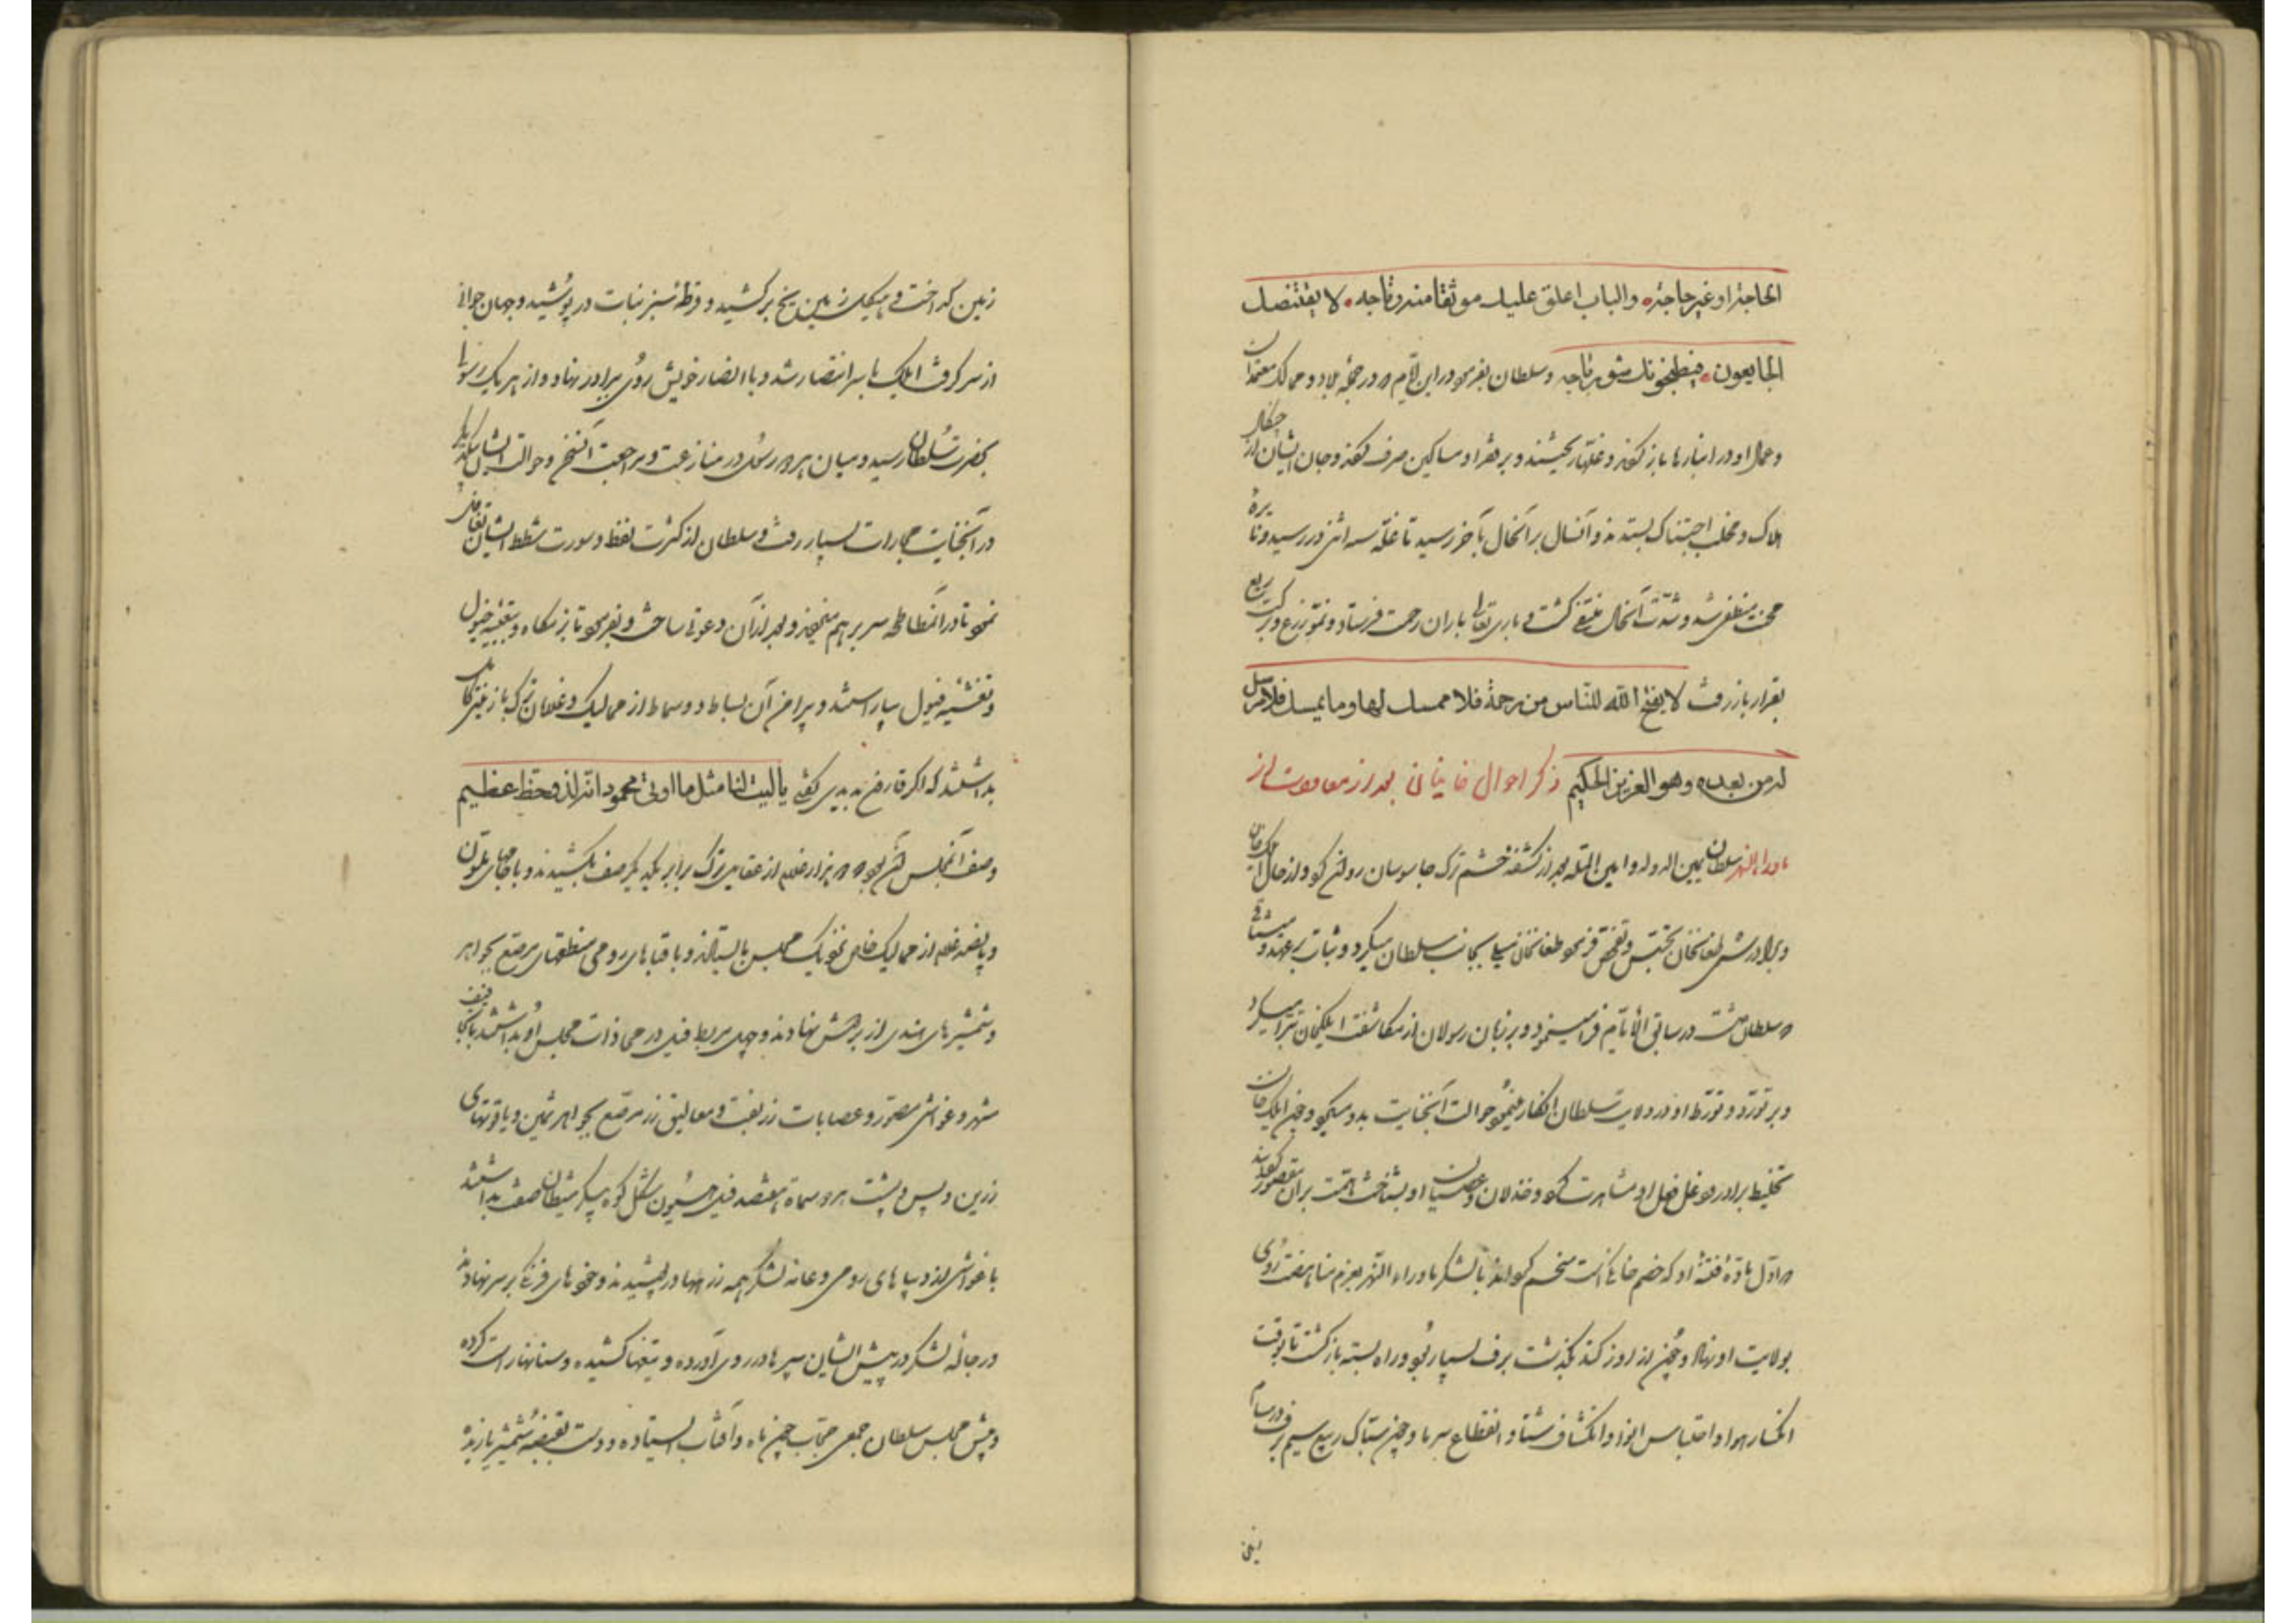 الحاجة او غير حاجة والباب اغلق عليك موثقا منه رتاجه لا يقتنصك
الجايعون فيطبخونك شوربتاجه وسلطان بفرمود در این ایام در جمله بلاد و ممالک معتمدان
و عمال او در انبارها باز کردند و غلتها ریختند و بر فقرا و مساکین صرف کردند و جان ایشان از چنگال
هلاک و مخلب اجتناک بستدند و آنسال بر آنحال بآخر رسید تا غلّه سنه اثنی در رسید و نایره
محنت منطفی شد و شدّت آنحال منتفی گشت و باری تعالی باران رحمت فرستاد و نمو زرع و برکت ریع
بقرار باز رفت لا یفتح الله للناس من رحمة فلا ممسك لها وما يمسك فلا مرسل
له من بعده وهو العزيز الحكيم ذکر احوال خانیان بعد از معاودت از
ماوراء النهر سلطان یمین الدوله و امین المله بعد از کشف خشم ترک جاسوسان روانه کرد و از حال ایلک خان
و برادرش طغانخان تجسّس و تفحّص فرمود طغانخان میل بجانب سلطان میکرد و ثبات بر عهد و میثاقی
که سلطان داشت در سابق الایام فرا مینمود و بر زبان رسولان از مکاشفت ایلکخان تبرّا میکرد
و بر تورّد و تورّط او در ولایت سلطان انکار مینمود و حوالت آن جنایت بدو میکرد و چون ایلک خان
تخلیط برادر و دغل فعل او مشاهدت کرد و خذلان و عصیان او بشناخت همّت بران مقصور گردانید
که اول مادّه فتنه او که خصم خانگیست منحسم گرداند با لشکر ماوراء النهر بعزم مناهضت روی
بولایت او نهاد و چون از اوزکند بگذشت برف بسیار بود و راه بسته بازگشت تا بوقت
انحسار هوا و احتباس انوا و انکشاف شتا و انقطاع سرما و چون سبّاک ربیع سیم برف در مسام
زمین گداخت و هیکل زمین یخ برکشید و قرطه سبز نبات در پوشید و جهان جوانی
از سر گرفت ایلک با سر انتصار شد و با انصار خویش روی ببرادر نهاد و از هر یک رسولها
بحضرت سلطان رسید و میان هر دو رسول در منازعت و مراجعت آن سخن و حوالت ایشان بیکدیگر
در آن جنایت مجارات بسیار رفت و سلطان از کثرت لغط و سورت شطط ایشان تغافل
نمود تا در آن مطاطحه سر برهم میزدند و بعد از آن دعوتی ساخت و بفرمود تا بزمگاه و تعبیه خیول
و تغشیه فیول بیاراستند و پیرامن آن بساط دو سماط از ممالیک و غلامان ترک با زینتی کامل
بداشتند که اگر قارون بدیدی گفتی یا لیت لنا مثل ما اوتی محمود انه لذو حظ عظیم
وصف آن مجلس آن بود که دو هزار غلام از عقایل ترک برابر یکدیگر صف بکشیدند و با جامهای ملوّن
و پانصد غلام از ممالیک خاص نزدیک مجلس بایستادند و با قباهای رومی منطقهای مرصّع بجواهر
و شمشیرهای هندی از بر دوش نهادند و چهل مربط فیل در محاذات مجلس او بداشتند با تجافیف
مشهر و غواشی مصوّر و عصابات زربفت و معالیق زر مرصّع بجواهر ثمین و یاقوتهای
زرین و پس و پشت هر دو سماط هفتصد فیل گردون شکل کوه پیکر شیطان صفت بداشتند
با غواشی از دیباهای رومی و عامه لشکر همه زرهها در پوشیدند و خودهای فرنگی بر سر نهادند
و رجاله لشکر در پیش ایشان سپرها در روی آورده و تیغها کشیده و سنانها راست کرده
و پیش مجلس سلطان جمعی حجّاب چون ماه و آفتاب ایستاده و دست بقبضه شمشیر یازیده